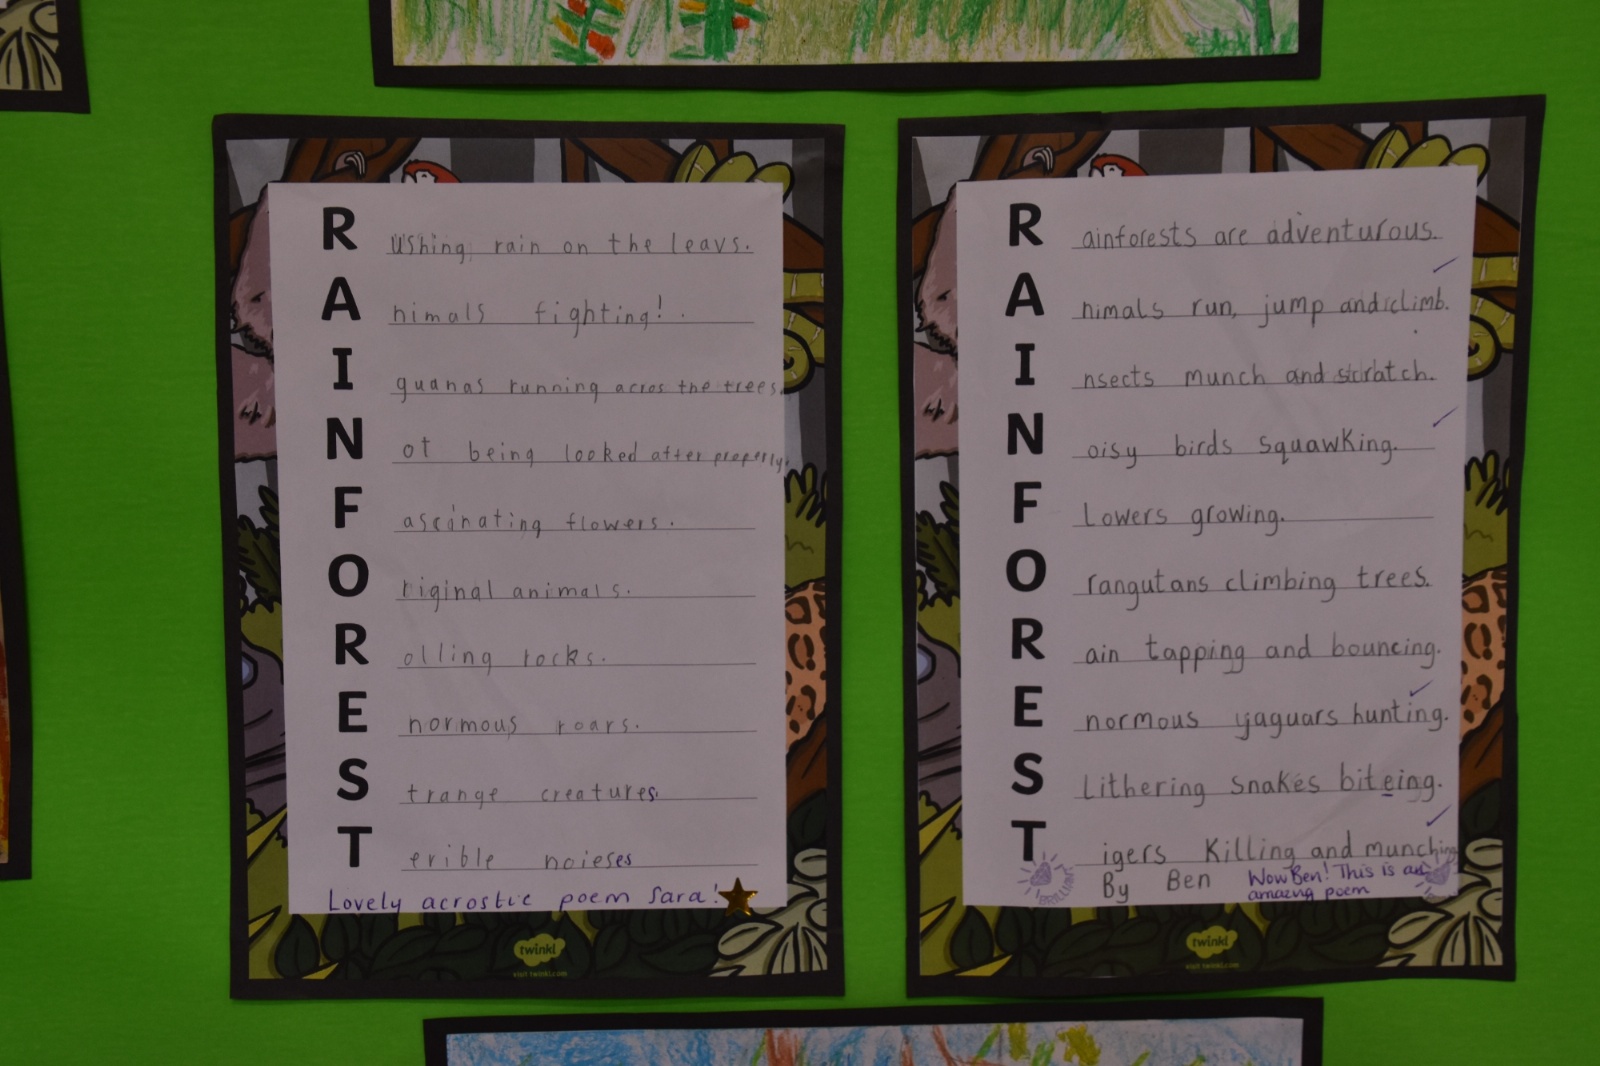 R ushing rain on the leavs.
A nimals fighting!.
I guanas running acros the trees.
N ot being looked after properly.
F ascinating flowers.
O riginal animals.
R olling rocks.
E normous roars.
S trange creatures.
T erible noieses
Lovely acrostic poem Sara!
twinkl
visit twinkl.com
R ainforests are adventurous.
A nimals run, jump and climb.
I nsects munch and scratch.
N oisy birds squawking.
F Lowers growing.
O rangutans climbing trees.
R ain tapping and bouncing.
E normous yaguars hunting.
S Lithering snakes biteing.
T igers Killing and munching
By Ben
Wow Ben! This is an
amazing poem
BRILLIANT
twinkl
visit twinkl.com